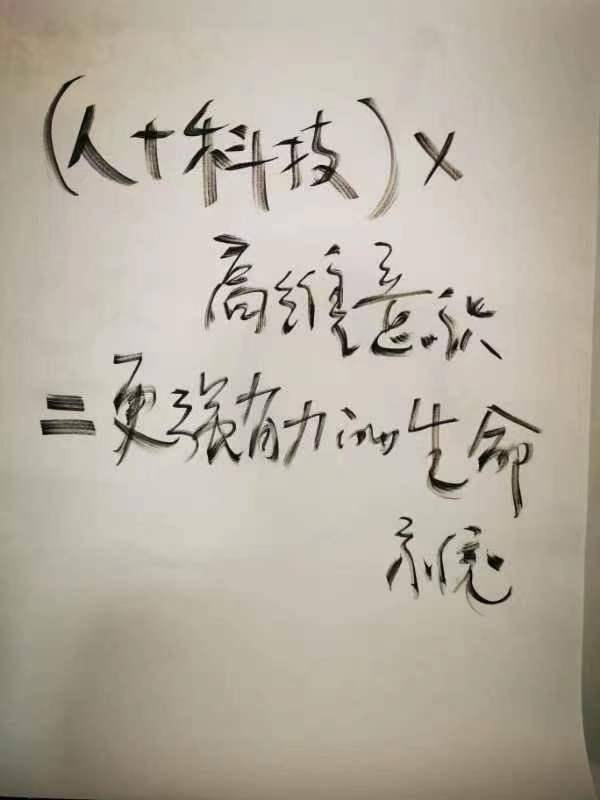 (人+科技)×
高维意识
=更强有力的生命